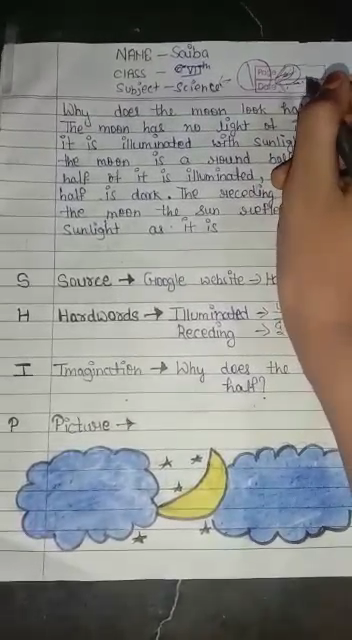 NAME - Saiba
CLASS - VIIth
Subject - Science
Page
Date
Why does the moon look
The moon has no light of
it is illuminated with
the moon is a round
half of it is illuminated,
half is dark. The receding
the moon the sun
sunlight as it is
S Source → Google website →
H Hardwords → Illuminated →
Receding →
I Imagination → Why does the
half?
P Picture →